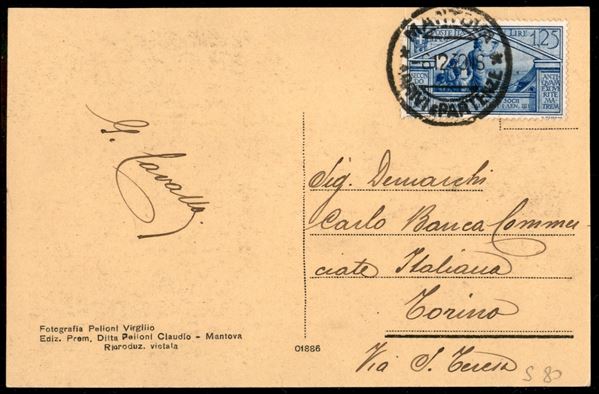 MANTOVA
ARRIVI E PARTENZE
POSTE ITALIANE LIRE 1,25
ANTI
QVAM
EXQVI
RITE
MA
TREM
G. Cavalla
Sig. Demarchi
Carlo Banca Commer
ciale Italiana
Torino
Via S. Teresa
S 80
Fotografia Pelloni Virgilio
Ediz. Prem. Ditta Pelloni Claudio - Mantova
Riproduz. vietata
01886